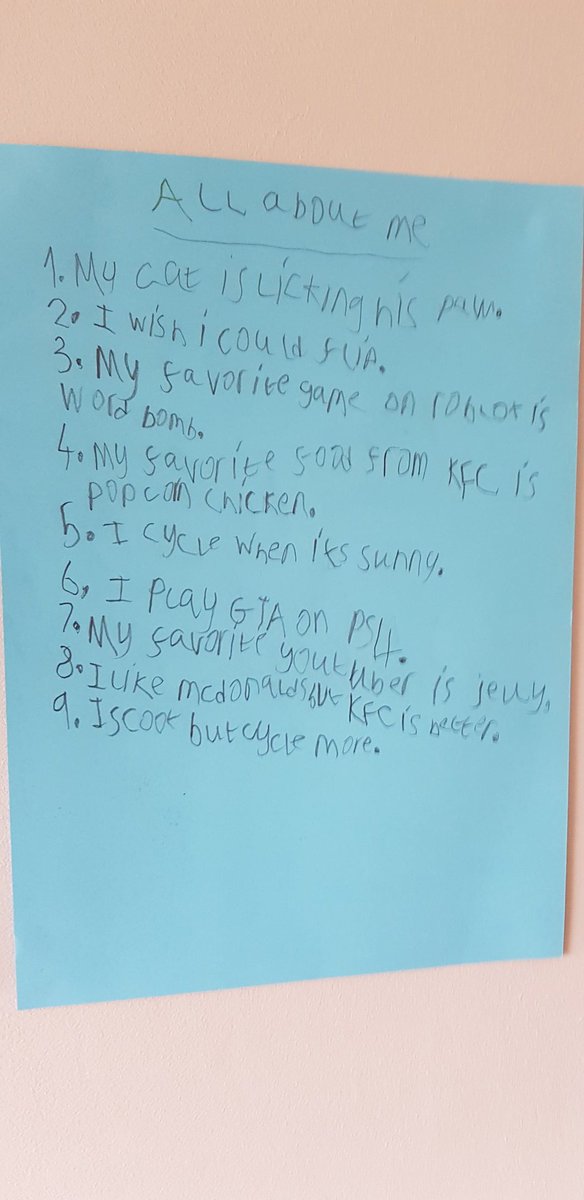 ALL about me
1. My cat is licking his paw.
2. I wish i could flip.
3. My favorite game on roblox is
word bomb.
4. My favorite food from KFC is
popcorn chicken.
5. I cycle when its sunny.
6. I play GTA on PS4.
7. My favorite youtuber is jelly.
8. I like mcdonalds but KFC is better.
9. I scoot but cycle more.